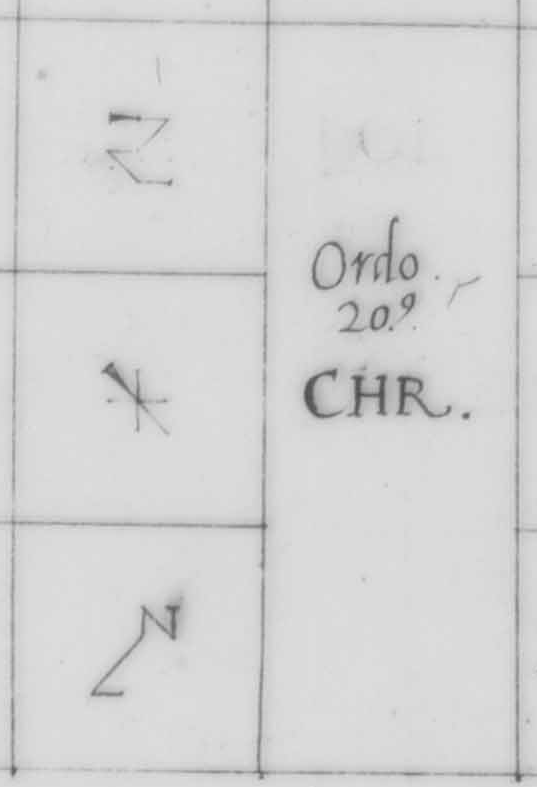 Ordo.
20.⁹
CHR.